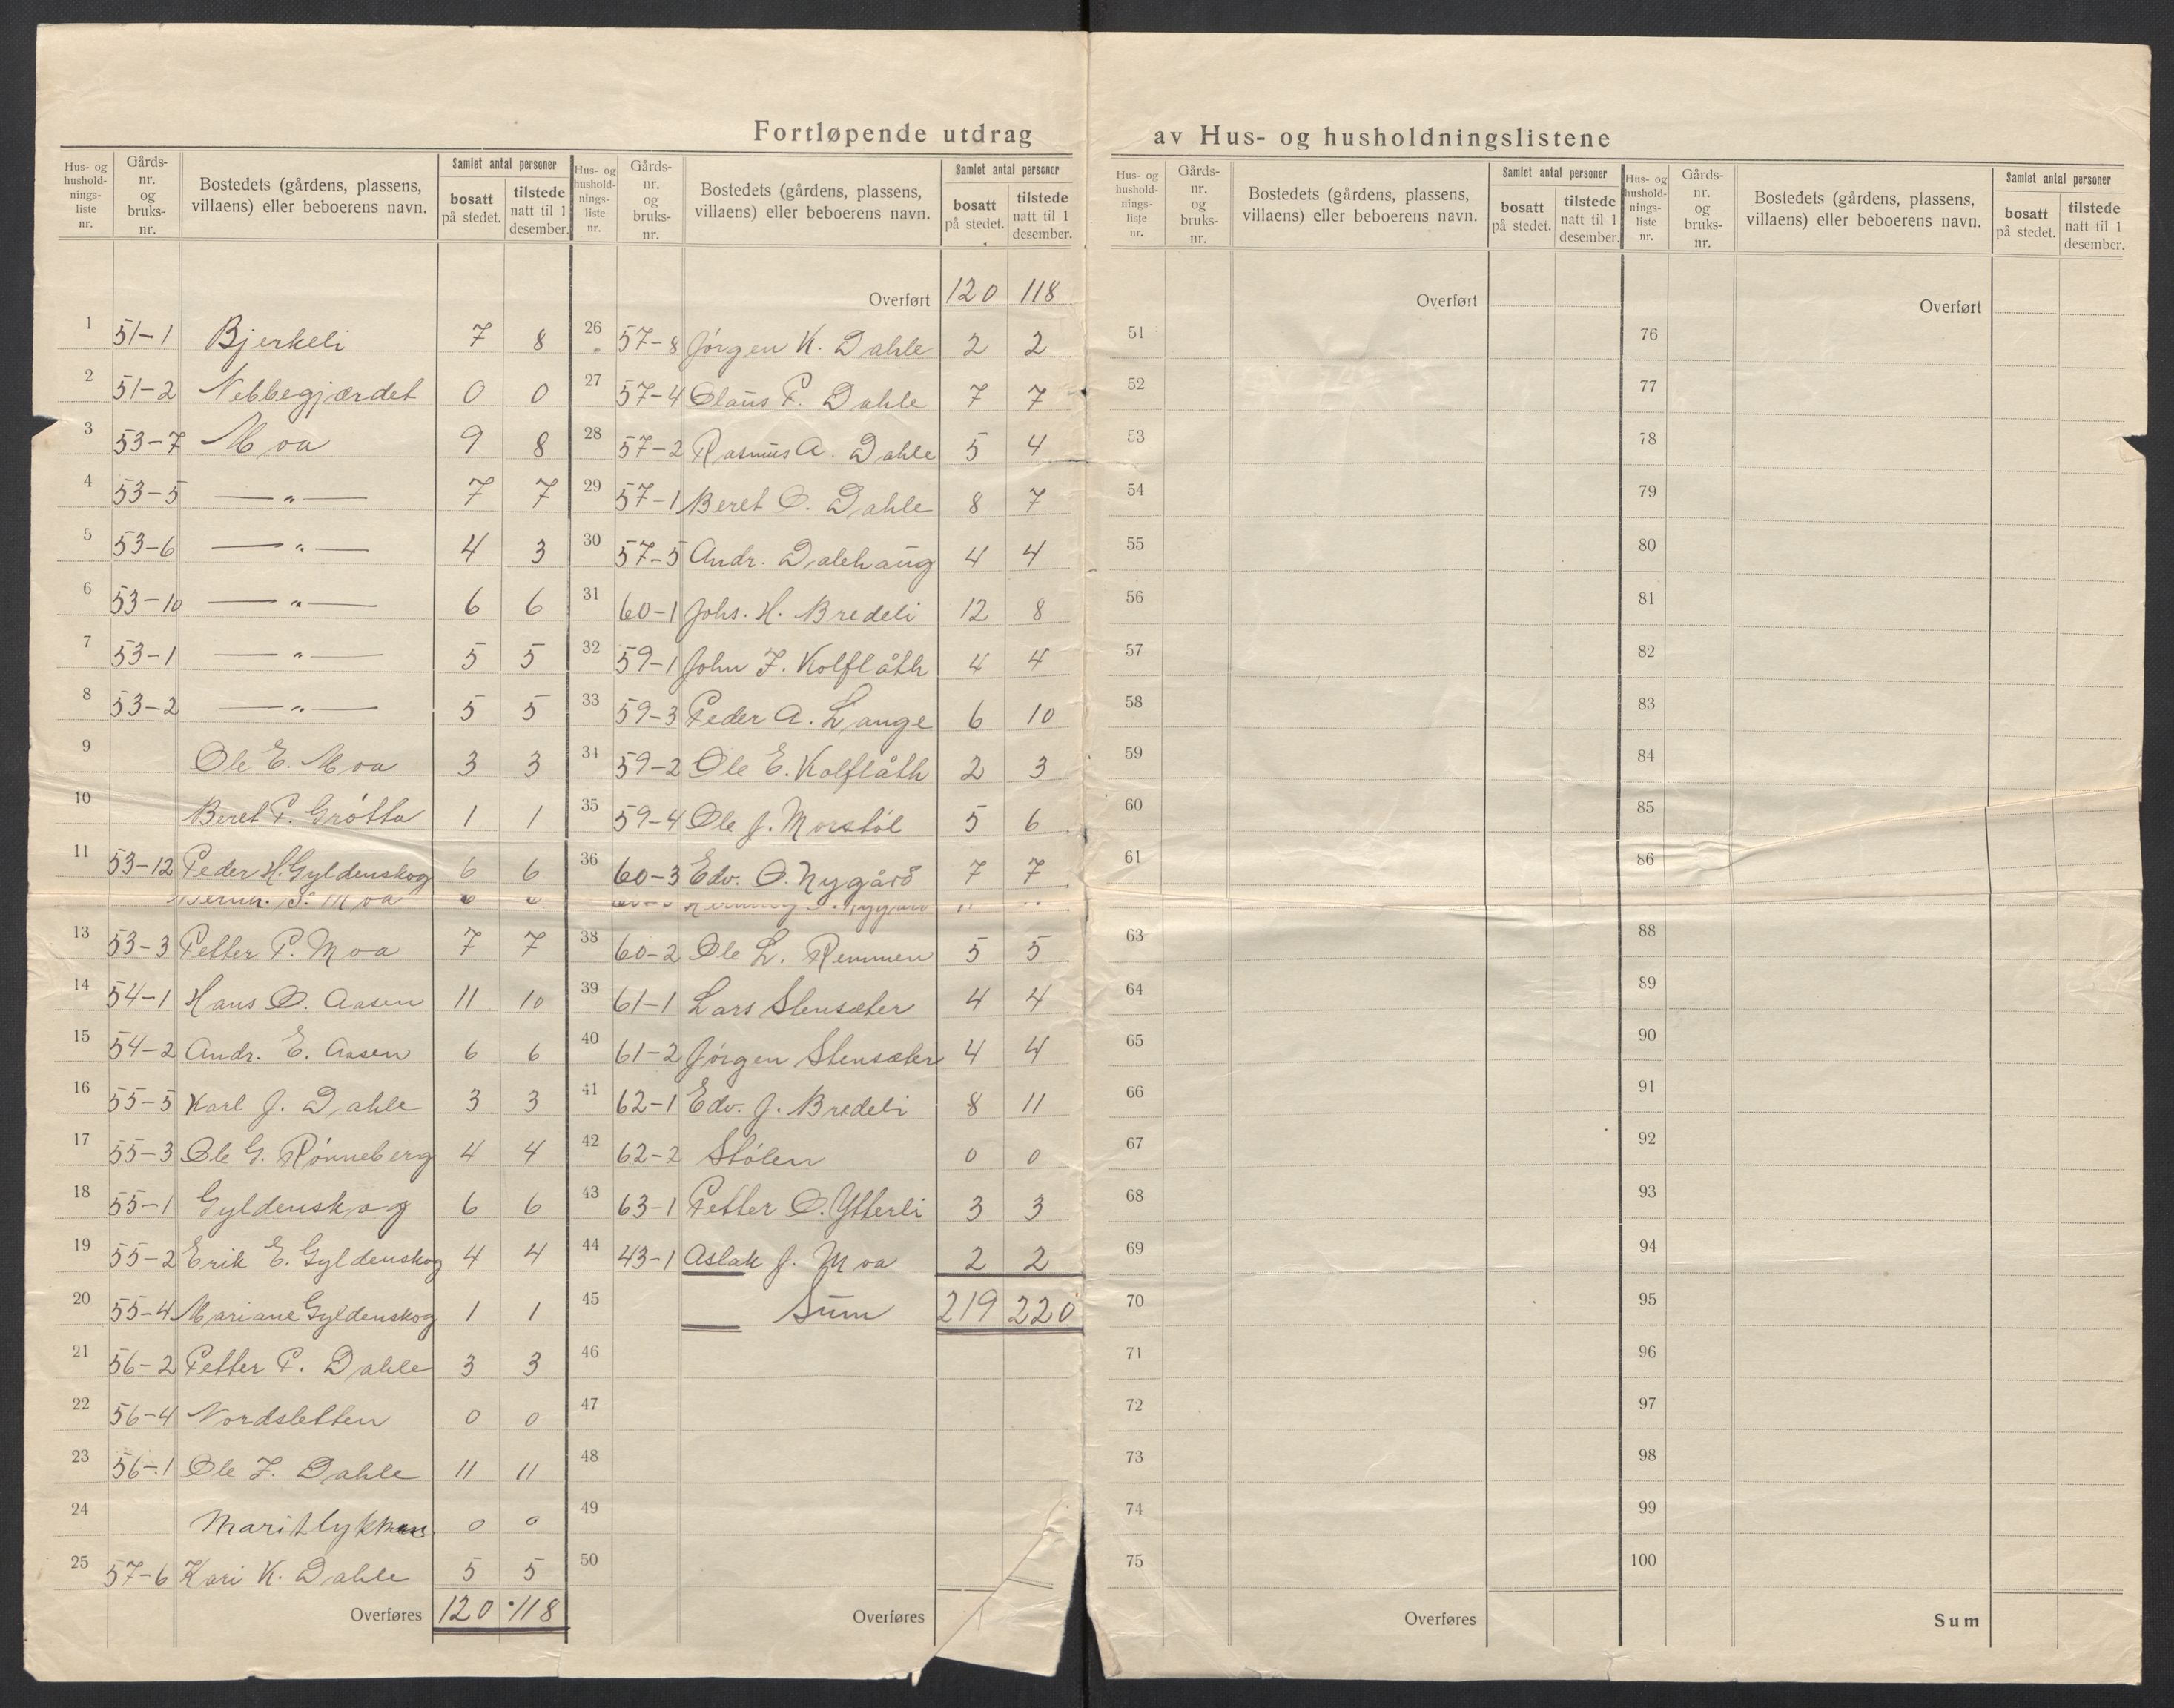 Fortløpende utdrag av Hus- og husholdningslistene
Hus- og husholdnings-liste nr. Gårds-nr. og bruks-nr. Bostedets (gårdens, plassens, villaens) eller beboerens navn. Samlet antal personer bosatt på stedet. tilstede natt til 1 desember.
1 51-1 Bjerkeli 7 8
2 51-2 Nebbegjærdet 0 0
3 53-7 Moa 9 8
4 53-5 —"— 7 7
5 53-6 —"— 4 3
6 53-10 —"— 6 6
7 53-1 —"— 5 5
8 53-2 —"— 5 5
9 Ole E. Moa 3 3
10 Beret P. Grøtta 1 1
11 53-12 Peder H. Gyldenskog 6 6
Moa
13 53-3 Petter P. Moa 7 7
14 54-1 Hans O. Aasen 11 10
15 54-2 Andr. E. Aasen 6 6
16 55-5 Karl J. Dahle 3 3
17 55-3 Ole G. Rønneberg 4 4
18 55-1 Gyldenskog 6 6
19 55-2 Erik E. Gyldenskog 4 4
20 55-4 Mariane Gyldenskog 1 1
21 56-2 Petter P. Dahle 3 3
22 56-4 Nordsletten 0 0
23 56-1 Ole J. Dahle 11 11
24 0 0
25 57-6 Kari K. Dahle 5 5
Overføres 120 118
Hus- og husholdnings-liste nr. Gårds-nr. og bruks-nr. Bostedets (gårdens, plassens, villaens) eller beboerens navn. Samlet antal personer bosatt på stedet. tilstede natt til 1 desember.
Overført 120 118
26 57-8 Jørgen K. Dahle 2 2
27 57-4 Olaus P. Dahle 7 7
28 57-2 Rasmus A. Dahle 5 4
29 57-1 Beret O. Dahle 8 7
30 57-5 Andr. Dalehaug 4 4
31 60-1 Johs. H. Bredeli 12 8
32 59-1 John J. Kolflåth 4 4
33 59-3 Peder A. Lange 6 10
34 59-2 Ole E. Kolflåth 2 3
35 59-4 Ole J. Morstøl 5 6
36 60-3 Edv. O. Nygård 7 7
38 60-2 Ole L. Remmen 5 5
39 61-1 Lars Stensæter 4 4
40 61-2 Jørgen Stensæter 4 4
41 62-1 Edv. J. Bredeli 8 11
42 62-2 Stølen 0 0
43 63-1 Petter O. Ytterli 3 3
44 43-1 Aslak J. Moa 2 2
45 Sum 219 220
46
47
48
49
50
Overføres
Hus- og husholdnings-liste nr. Gårds-nr. og bruks-nr. Bostedets (gårdens, plassens, villaens) eller beboerens navn. Samlet antal personer bosatt på stedet. tilstede natt til 1 desember.
Overført
51
52
53
54
55
56
57
58
59
60
61
63
64
65
66
67
68
69
70
71
72
73
74
75
Overføres
Hus- og husholdnings-liste nr. Gårds-nr. og bruks-nr. Bostedets (gårdens, plassens, villaens) eller beboerens navn. Samlet antal personer bosatt på stedet. tilstede natt til 1 desember.
Overført
76
77
78
79
80
81
82
83
84
85
86
88
89
90
91
92
93
94
95
96
97
98
99
100
Sum